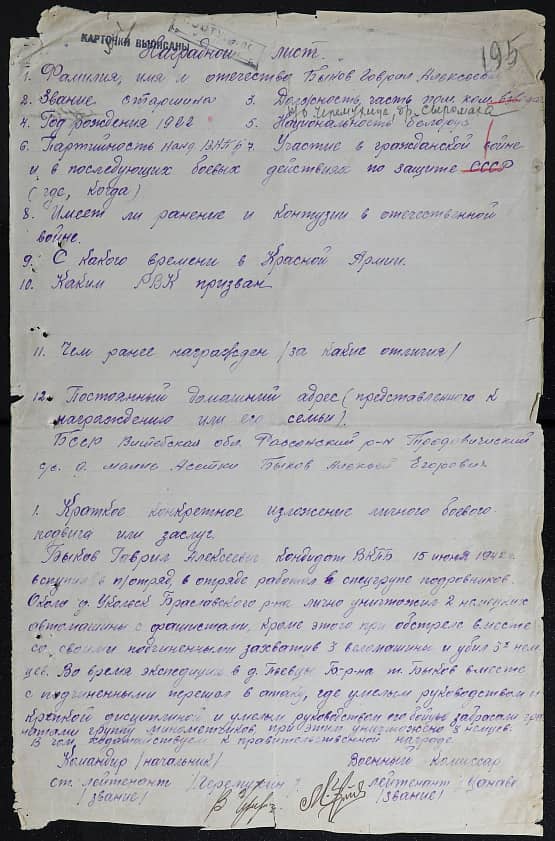 КАРТОЧКИ ВЫПИСАНЫ
195
Наградной лист.
1. Фамилия, имя и отчество Быков Гаврил Алексеевич
2. Звание старшина 3. Должность, часть пом. ком.
4. Год рождения 1922 5. Национальность белорус
6. Партийность Канд. ВКПБ 7. Участие в гражданской войне
и в последующих боевых действиях по защите СССР
(где, когда)
8. Имеет ли ранение и контузии в отечественной
войне.
9. С какого времени в Красной Армии.
10. Каким РВК призван
11. Чем ранее награжден /за какие отличия/
12. Постоянный домашний адрес (представленного к
награждению или его семьи).
БССР Витебская обл. Россонский р-н
с/с д. Быков Алексей Егорович
1. Краткое конкретное изложение личного боевого
подвига или заслуг.
Быков Гаврил Алексеевич кандидат ВКПБ 15 июня 194
вступил в п/отряд, в отряде работал в спецгрупе подровников.
Около д. Браславского р-на лично уничтожил 2 немецких
автомашины с фашистами, кроме этого при обстреле вместе
со своими подчиненными захватив 3 веломашины и убил 5х нем
цев. Во время экспедиции в д. Б-р-на т. Быков вместе
с подчиненными перешол в атаку, где умелым руководством и
крепкой дисциплиной и умелым руководством его бойцы забрасали гра
натами группу минометчиков, при этим уничтожено 8 немцев.
В чем ходатайствуем к правительственной награде.
Командир /начальник/ Военный комиссар
ст. лейтенант лейтенант
/звание/ /звание/